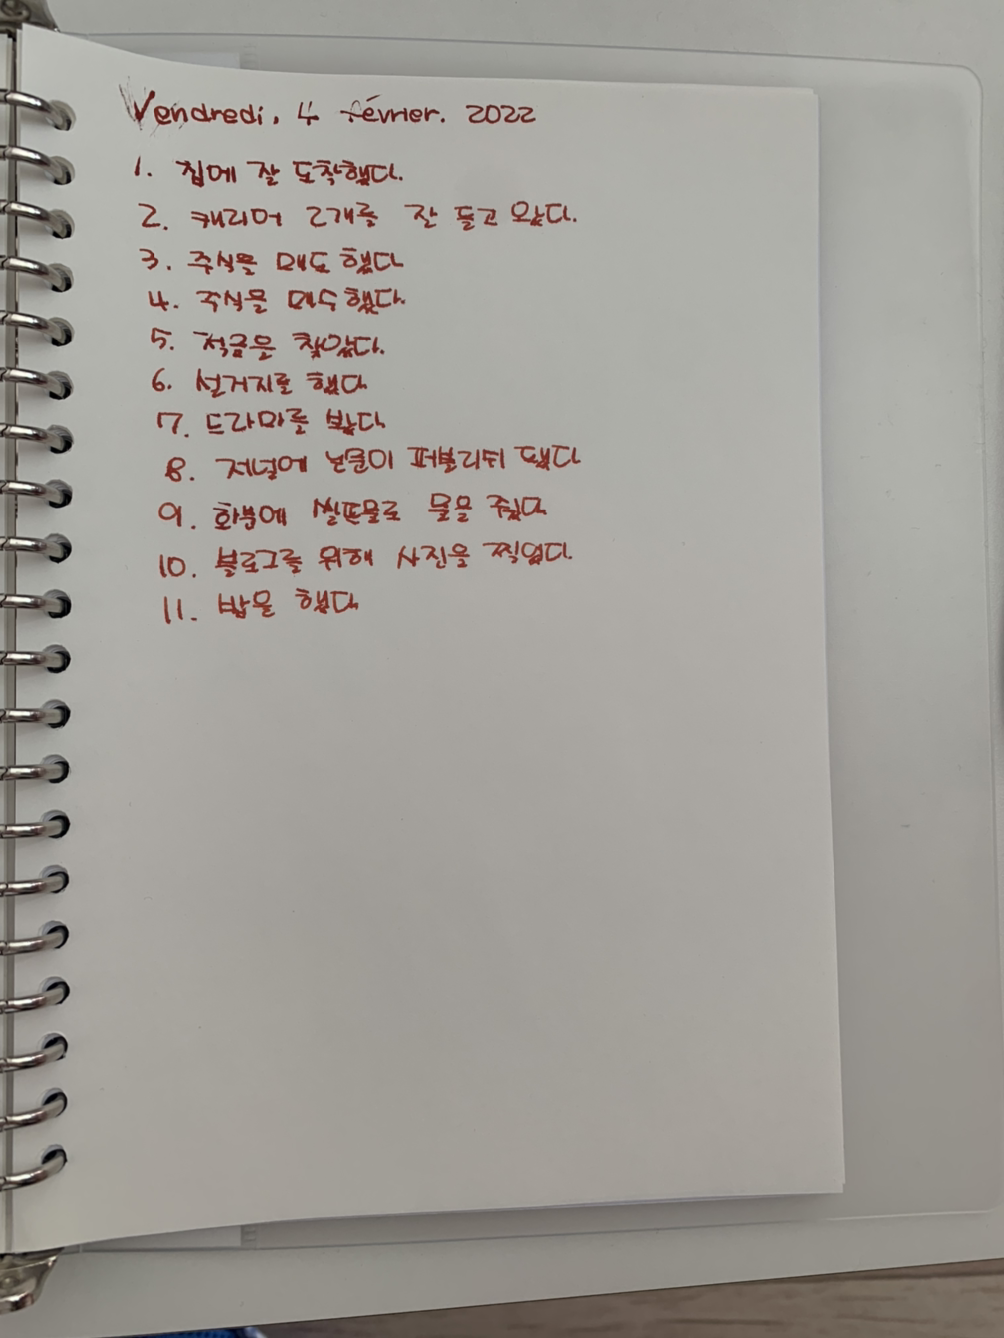 Vendredi, 4 février. 2022
1. 집에 잘 도착했다.
2. 캐리어 2개를 잘 들고 왔다.
3. 주식을 매도 했다
4. 주식을 매수 했다.
5. 적금을 찾았다.
6. 설거지를 했다
7. 드라마를 봤다
8. 저널에 논문이 퍼블리쉬 됐다
9. 화분에 쌀뜬물로 물을 줬다
10. 블로그를 위해 사진을 찍었다.
11. 밥을 했다